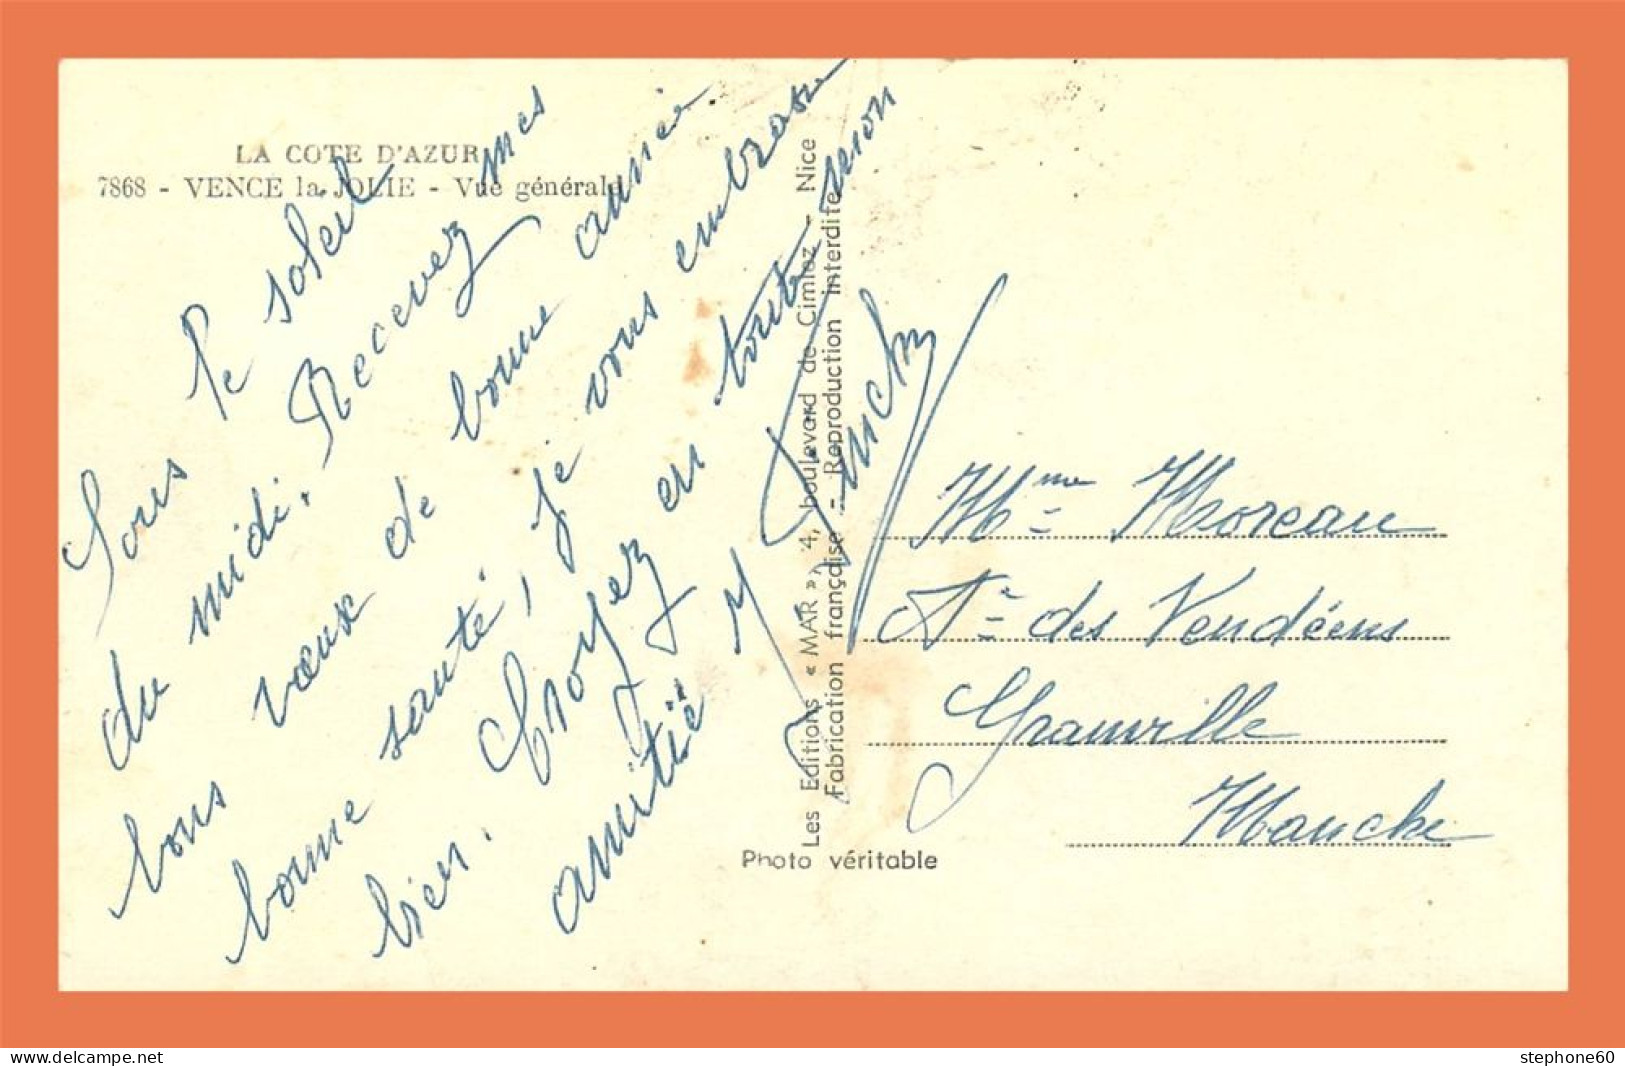 LA COTE D'AZUR
7868 - VENCE la JOLIE - Vue générale
Sous le soleil
du midi. Recevez mes
bons vœux de bonne année
bonne santé, je vous embrasse
bien. Croyez en toute mon
amitié
Les Editions « MAR », 4, boulevard de Cimiez - Nice
Fabrication française - Reproduction interdite
Photo véritable
Mme Moreau
des Vendéens
Granville
Manche
stephone60
www.delcampe.net